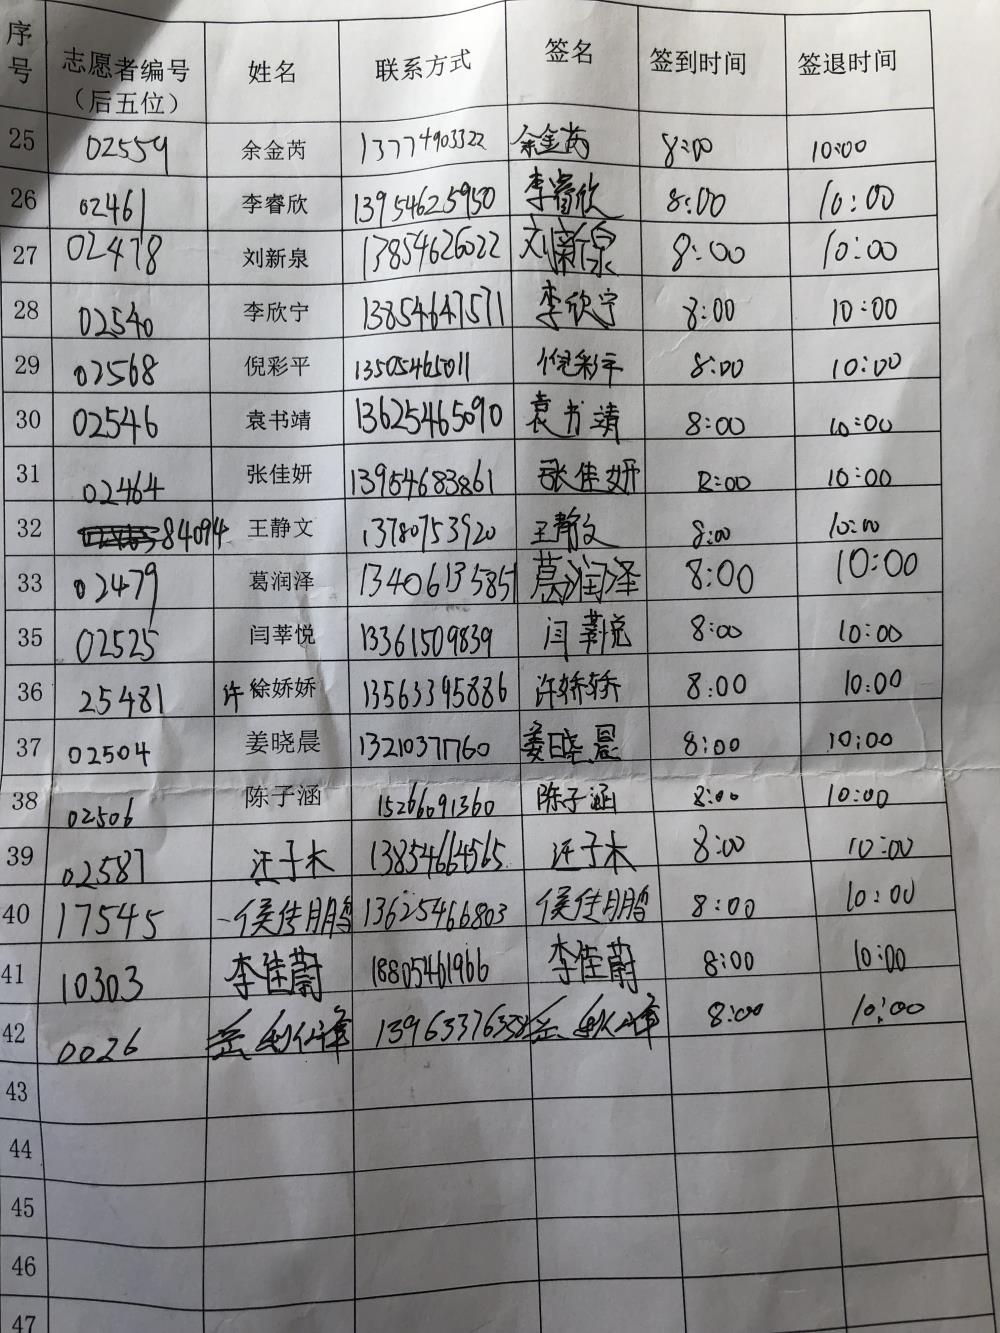 序号 志愿者编号（后五位） 姓名 联系方式 签名 签到时间 签退时间
25 02559 余金芮 13774903322 余金芮 8:00 10:00
26 02461 李睿欣 13954625950 李睿欣 8:00 10:00
27 02478 刘新泉 13854626022 刘新泉 8:00 10:00
28 02540 李欣宁 13854647571 李欣宁 8:00 10:00
29 02568 倪彩平 13505465011 倪彩平 8:00 10:00
30 02546 袁书靖 13625465090 袁书靖 8:00 10:00
31 02464 张佳妍 13954683861 张佳妍 8:00 10:00
32 84094 王静文 13780753920 王静文 8:00 10:00
33 02479 葛润泽 13406135851 葛润泽 8:00 10:00
35 02525 闫莘悦 13361509839 闫莘悦 8:00 10:00
36 25481 许 徐娇娇 13563395886 许娇娇 8:00 10:00
37 02504 姜晓晨 13210377760 姜晓晨 8:00 10:00
38 02506 陈子涵 15266091360 陈子涵 8:00 10:00
39 02587 汪子木 13854664565 汪子木 8:00 10:00
40 17545 侯传鹏 13625466803 侯传鹏 8:00 10:00
41 10303 李佳蔚 18805461966 李佳蔚 8:00 10:00
42 0026 8:00 10:00
43
44
45
46
47